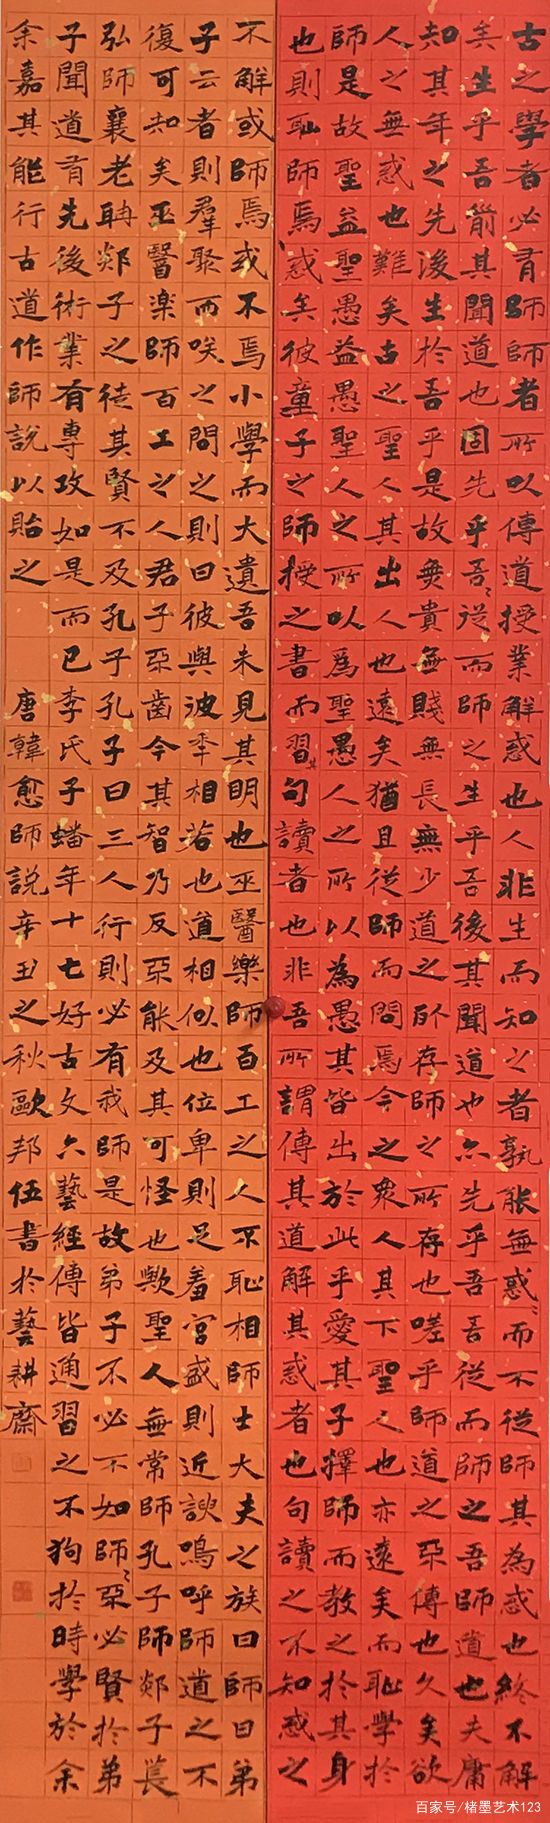 古之學者必有師師者所以傳道授業解惑也人非生而知之者孰能無惑〻而不從師其為惑也終不解
矣生乎吾前其聞道也固先乎吾〻從而師之生乎吾後其聞道也亦先乎吾吾從而師之吾師道也夫庸
知其年之先後生於吾乎是故無貴無賤無長無少道之所存師之所存也嗟乎師道之不傳也久矣欲
人之無惑也難矣古之聖人其出人也遠矣猶且從師而問焉今之眾人其下聖人也亦遠矣而恥學於
師是故聖益聖愚益愚聖人之所以為聖愚人之所以為愚其皆出於此乎愛其子擇師而教之於其身
也則恥師焉惑矣彼童子之師授之書而習其句讀者也非吾所謂傳其道解其惑者也句讀之不知惑之
不解或師焉或不焉小學而大遺吾未見其明也巫醫樂師百工之人不恥相師士大夫之族曰師曰弟
子云者則羣聚而咲之問之則曰彼與彼年相若也道相似也位卑則足羞官盛則近諛嗚呼師道之不
復可知矣巫醫樂師百工之人君子不齒今其智乃反不能及其可怪也歟聖人無常師孔子師郯子萇
弘師襄老聃郯子之徒其賢不及孔子孔子曰三人行則必有我師是故弟子不必不如師〻不必賢於弟
子聞道有先後術業有專攻如是而已李氏子蟠年十七好古文六藝經傳皆通習之不拘於時學於余
余嘉其能行古道作師說以貽之 唐韓愈師說辛丑之秋歐邦伍書於藝耕齋
百家号/楮墨艺术123